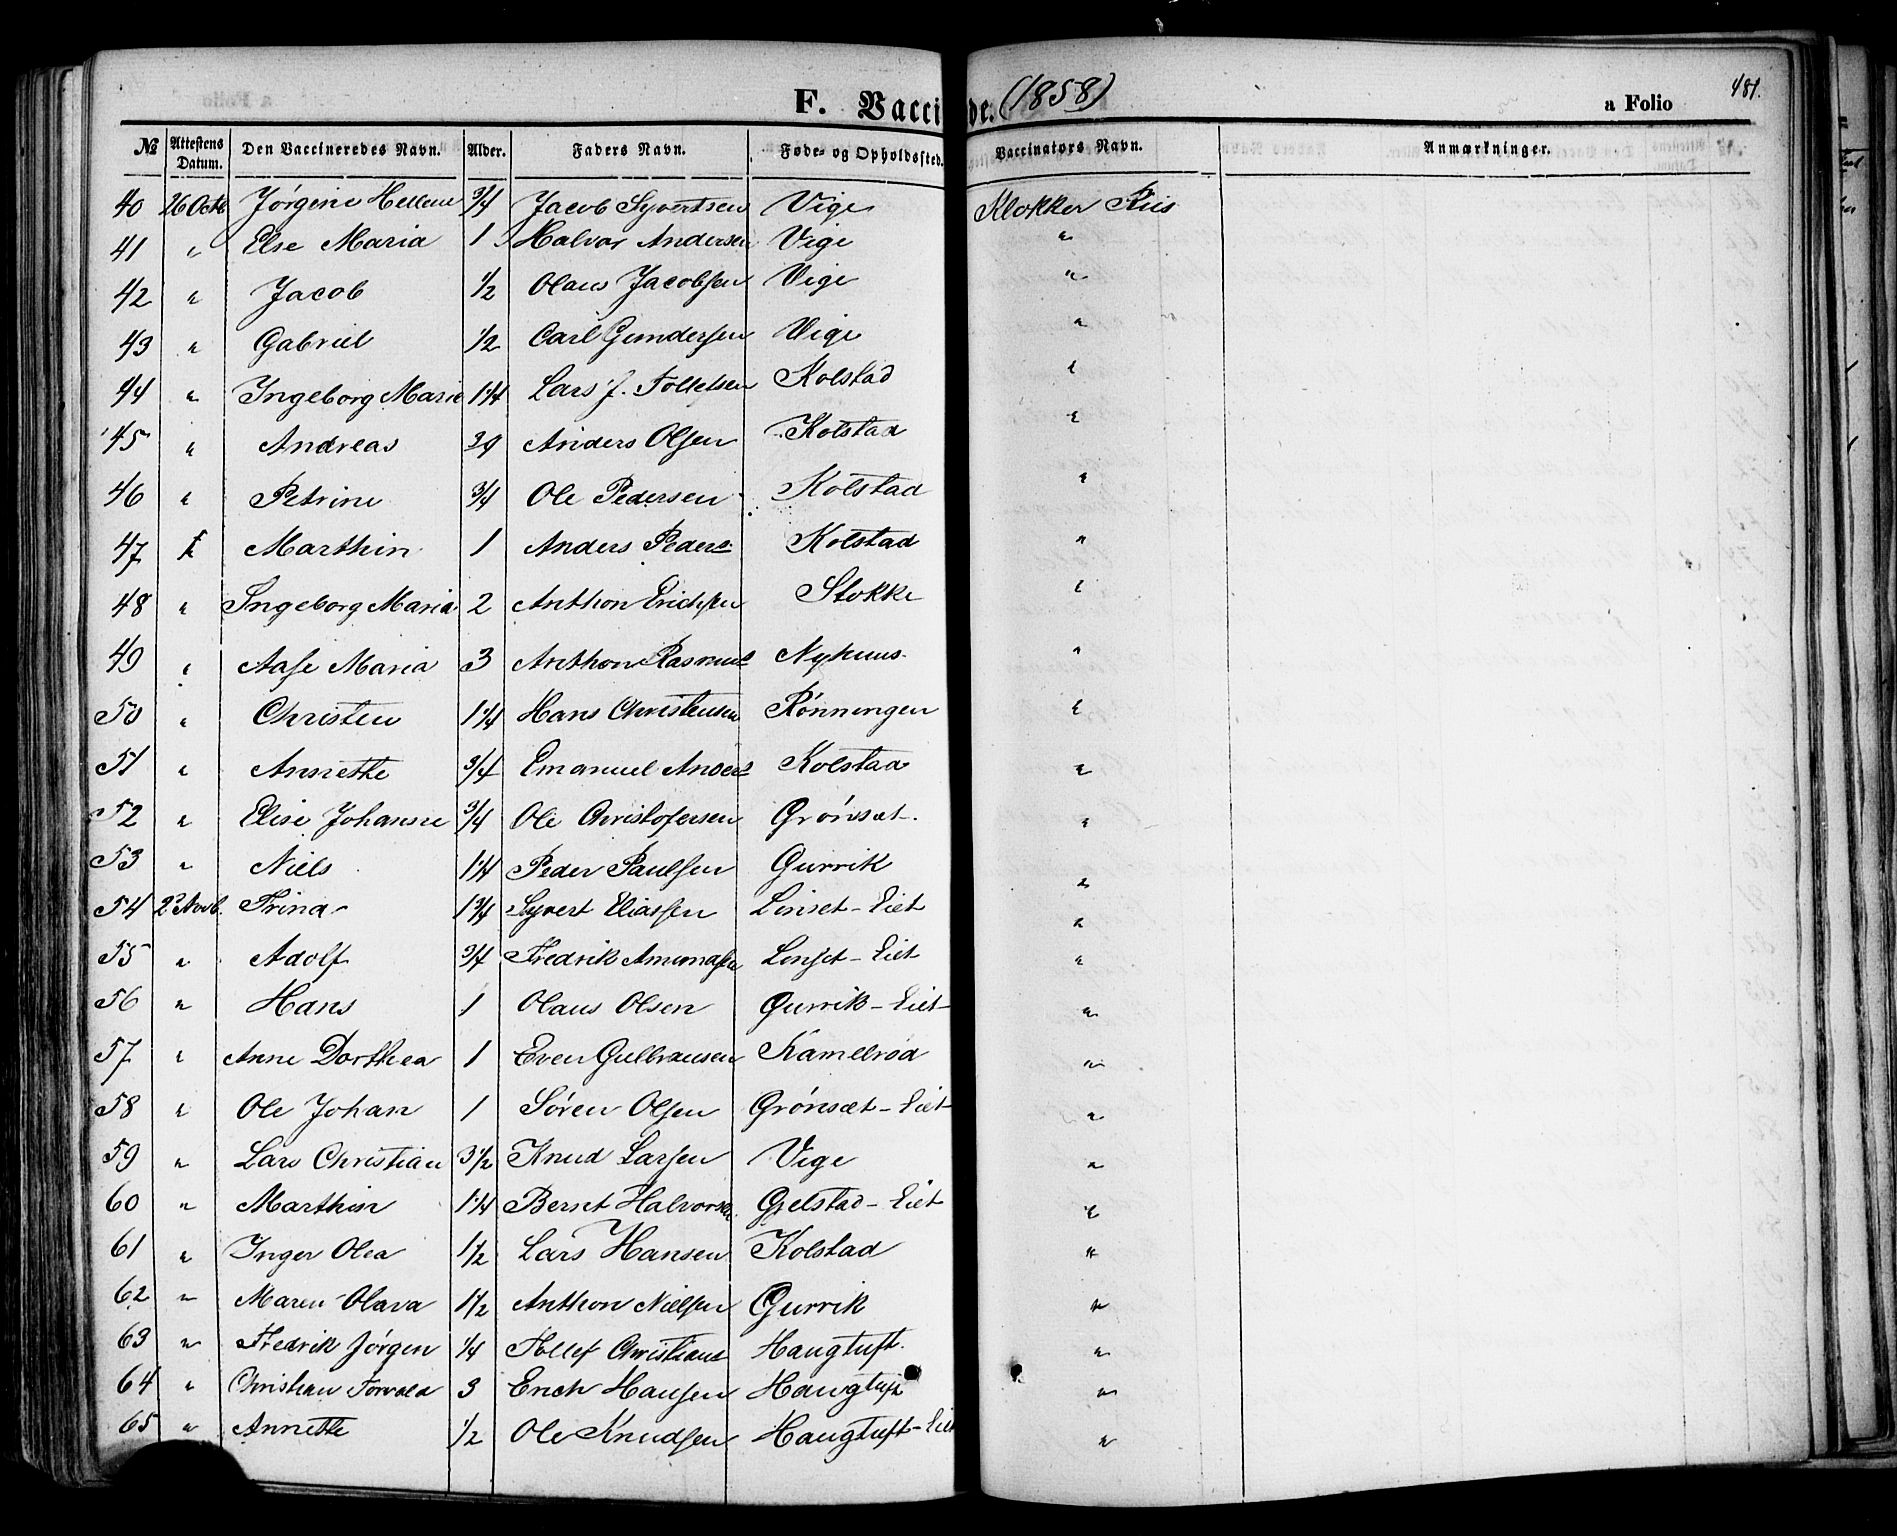 F. Vacci de. (1858) a Folio 481.
No Attestens Datum. Den Vaccineredes Navn. Alder. Faders Navn. Føde- og Opholdssted. Vaccinators Navn. Anmærkninger.
40 26 Octb Jørgine Hellene 3/4 Jacob Syvertsen Vige Klokker Riis
41 " Else Maria 1 Halvor Andersen Vige "
42 " Jacob 1/2 Olaus Jacobsen Vige "
43 " Gabriel 1/2 Carl Gundersen Vige "
44 " Ingeborg Marie 1 1/4 Lars J. Tollefsen Kolstad "
45 " Andreas Anders Olsen Kolstad "
46 " Petrine 3/4 Ole Pedersen Kolstad "
47 Marthin 1 Anders Peders Kolstad "
48 " Ingeborg Maria 2 Anthon Erichsen Stokke "
49 " Aase Maria 3 Anthon Rasmus Nyhuus "
50 " Christen 1 1/4 Hans Christensen Rønningen "
51 " Annette 3/4 Emanuel Anders Kolstad "
52 " Elise Johanne 3/4 Ole Christofersen Grønsæt. "
53 " Niels 1 1/4 Peder Paulsen Gurrik "
54 2 Novb. Trina 1 3/4 Syvert Eliassen Linset-Eiet "
55 " Adolf 3/4 Fredrik Amundsen Linset-Eiet "
56 " Hans 1 Olaus Olsen Gurrik-Eiet "
57 " Anne Dorthea 1 Even Gulbransen Kamelrød "
58 " Ole Johan 1 Søren Olsen Grønsæt-Eiet "
59 " Lars Christian 3 1/2 Knud Larsen Vige "
60 " Marthin 1 1/4 Bernt Halvorsen Gjelstad-Eiet "
61 " Inger Olea 1/2 Lars Hansen Kolstad "
62 " Maren Olava 1 1/2 Anthon Nielsen Gurrik "
63 " Fredrik Jørgen 1/4 Tollef Christians Haugtuft. "
64 " Christian Torvald 3 Erich Hansen Haugtuft "
65 " Annette 1/2 Ole Knudsen Haugtuft-Eiet "